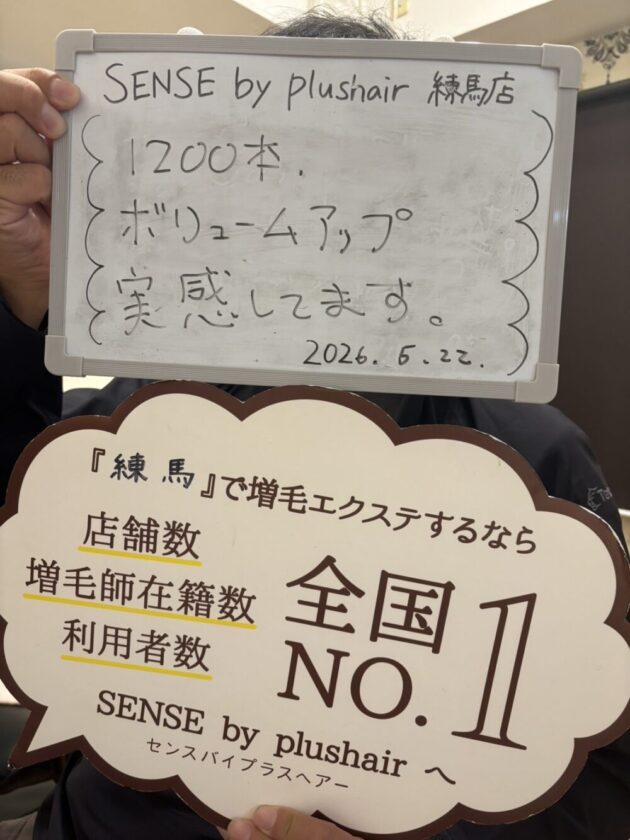 SENSE by plushair 練馬店
1200本.
ボリュームアップ
実感してます。
2026. 6.22.
『練馬』で増毛エクステするなら
店舗数
増毛師在籍数
利用者数
全国
NO.1
SENSE by plushair へ
センスバイプラスヘアー